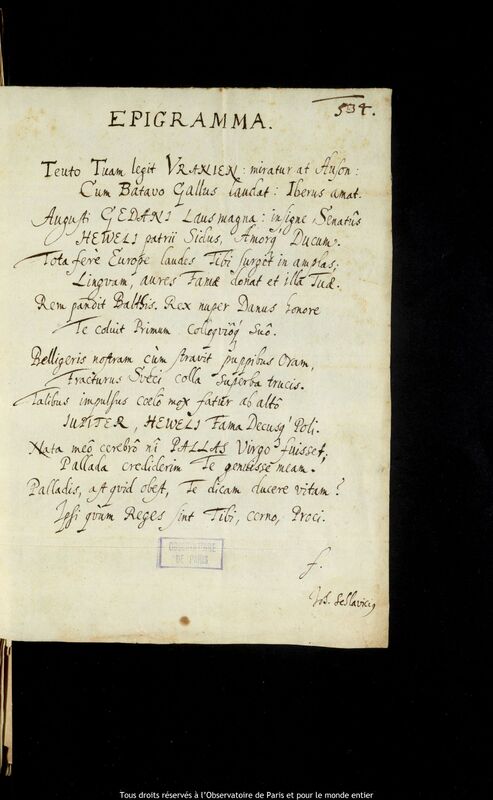 534.
EPIGRAMMA.
Teuto Tuam legit VRANIEN : miratur at Auson :
Cum Batavo Gallus laudat : Iberus amat.
Augusti GEDANI Laus magna : insigne Senatûs
HEWELI patrii Sidus, Amorq́ Ducum.
Tota ferè Europe laudes Tibi surgit in amplas;
Linguam, aures Famæ donat et illa Tuæ.
Rem pandit Balthis. Rex nuper Danus honore
Te coluit Primum colloquiôq́ Suô.
Belligeris nostram cùm stravit puppibus Oram,
Fracturus Sveci colla superba trucis.
Talibus impulsus coelô mox fatur ab altô
IUPITER, HEWELI Fama Decusq́ Poli.
Nata meô cerebrô nî PALLAS Virgo fuisset,
Pallada crediderim Te genuisse meam.
Palladis, ast quid obest, Te dicam ducere vitam?
Ipsi quùm Reges sint Tibi, cerno, Proci.
OBSERVATOIRE
DE PARIS
f.
Joh.
Tous droits réservés à l'Observatoire de Paris et pour le monde entier